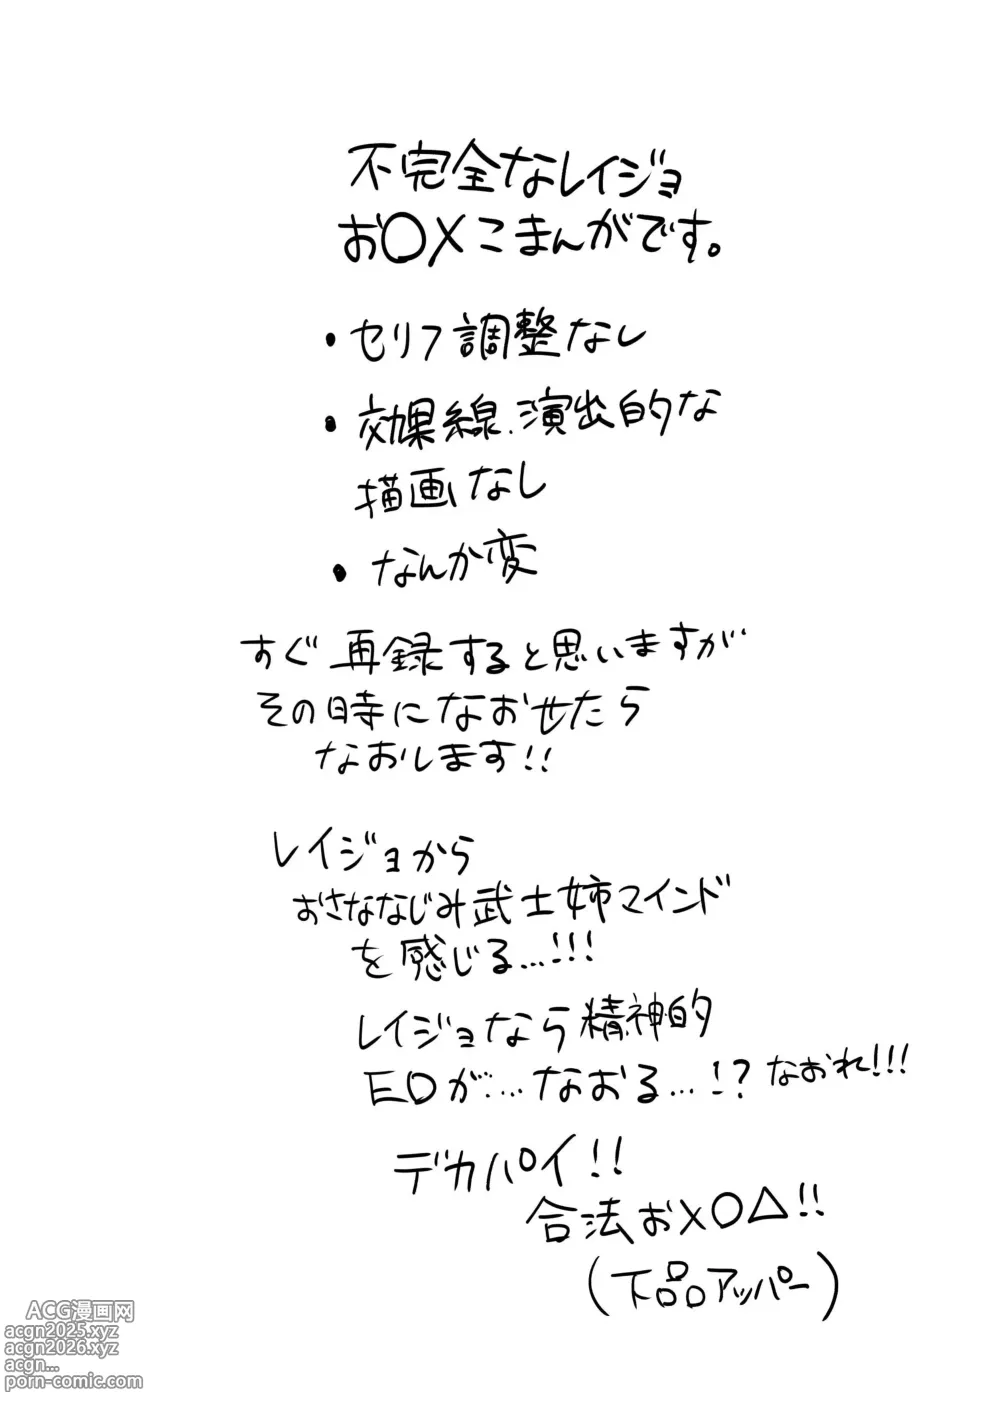 不完全なレイジョ
お〇メこまんがです。
・セリフ調整なし
・効果線、演出的な
描画なし
・なんか変
すぐ再録すると思いますが
その時になおせたら
なおします!!
レイジョから
おさななじみ武士姉マインド
を感じる…!!!
レイジョなら精神的
EDが……なおる…!? なおれ!!!
デカパイ!!
合法お×〇△!!
(下品アッパー)
ACG漫画网
acgn2025.xyz
acgn2026.xyz
acgn...
porn-comic.com